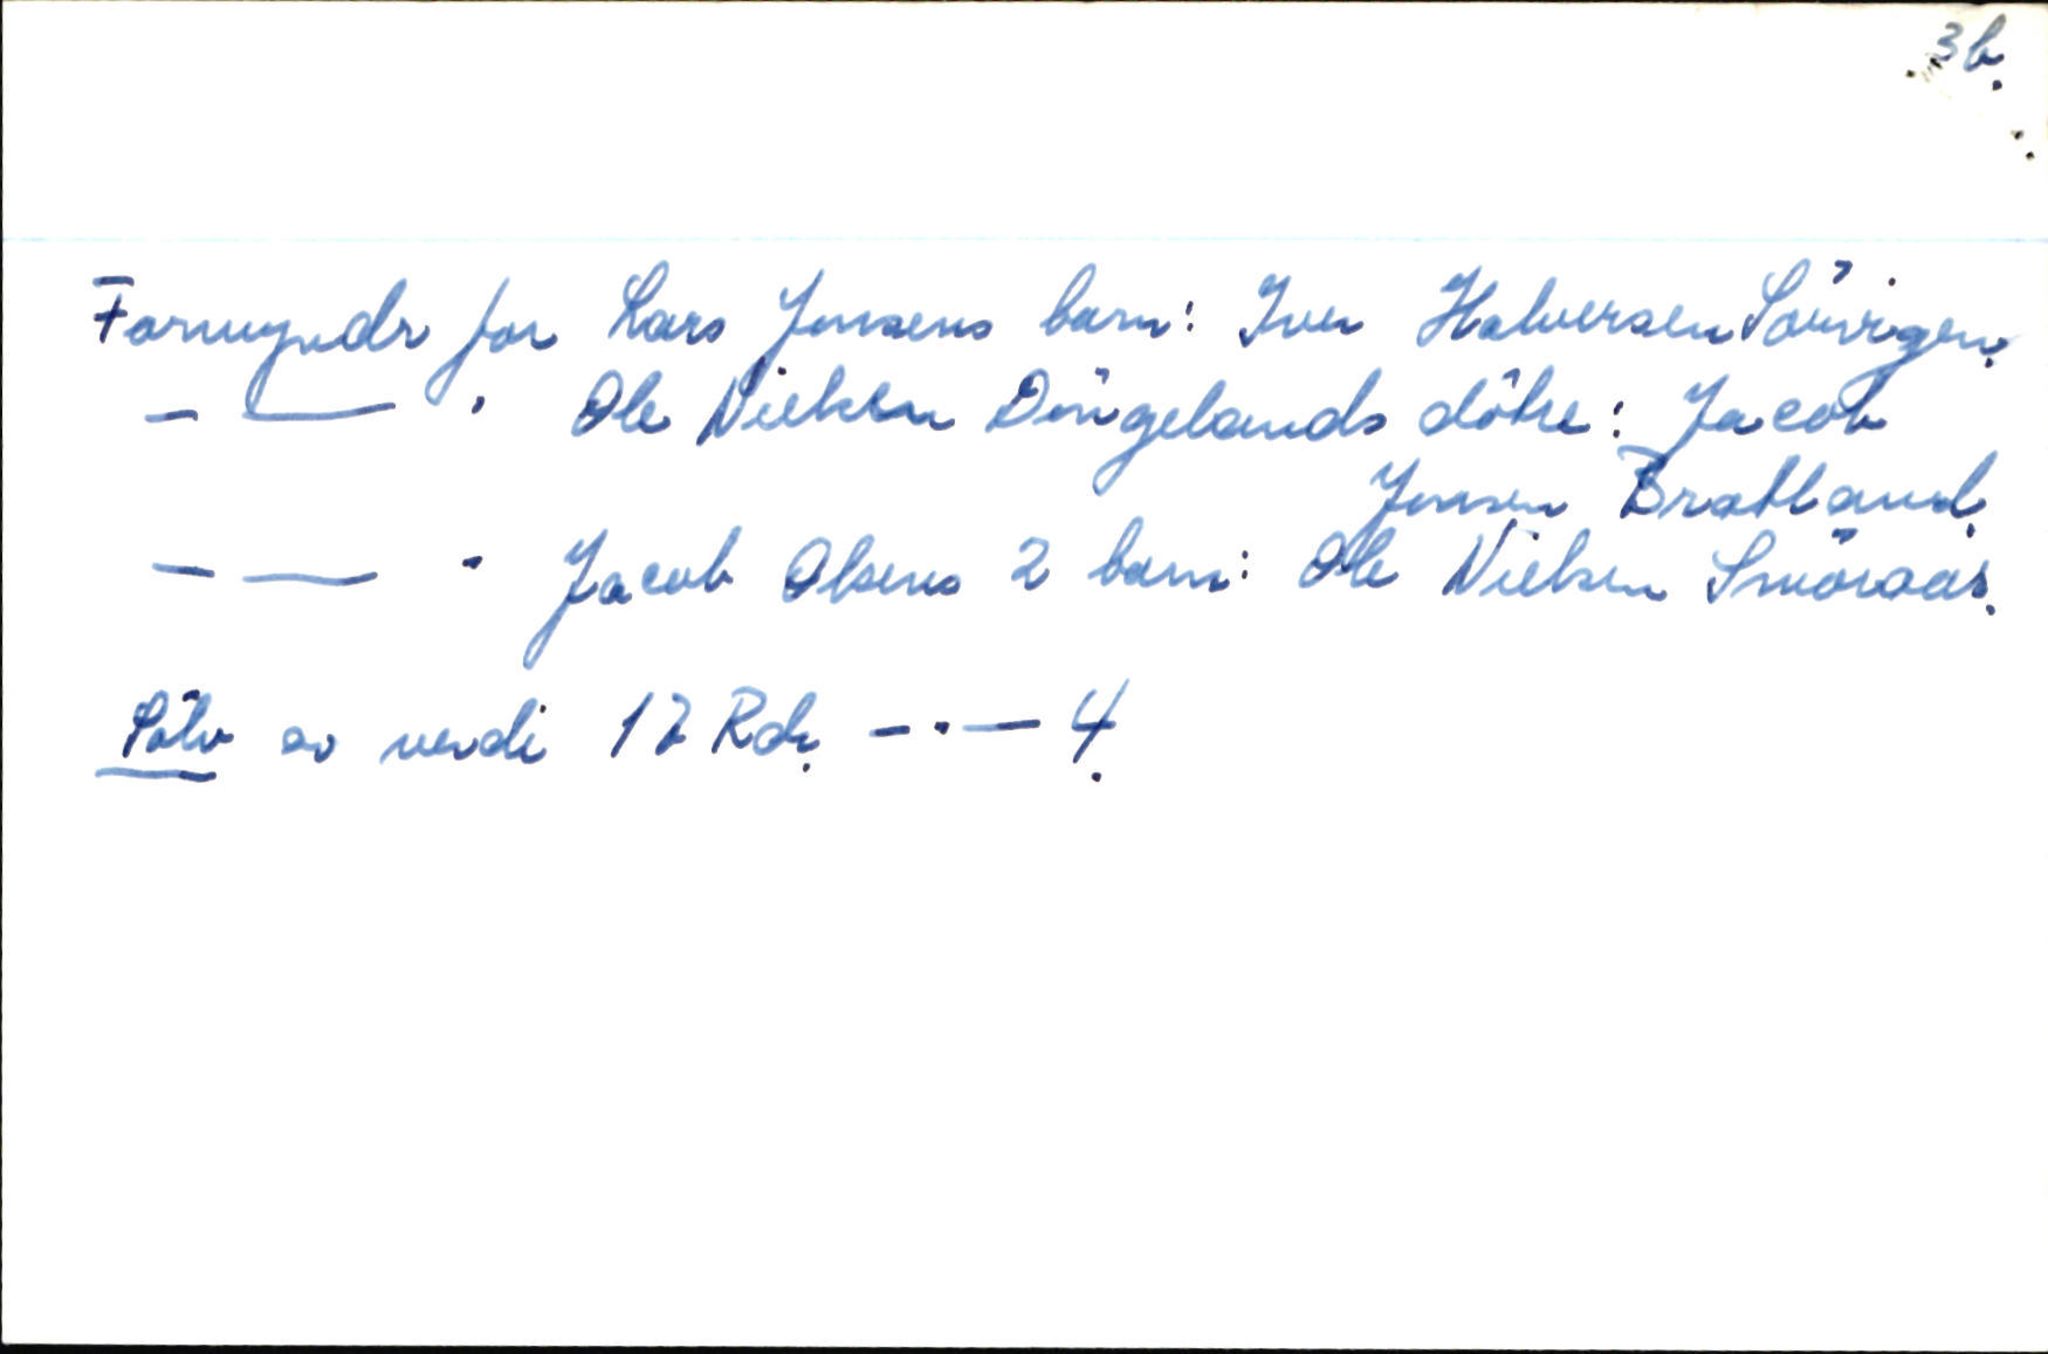 3b.
Formyndr for Lars Jonsens barn: Iver Halversen Sövigen.
— —— " Ole Nielsen Dingelands dötre: Jacob
Jonsen Bratland.
— —— " Jacob Olsens 2 barn: Ole Nielsen Smöraas.
Sölv av verdi 12 Rdr. - . — 4.